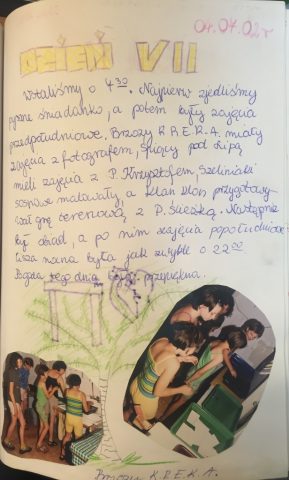 04.07.02r
DZIEŃ VII
Wstaliśmy o 4³⁰. Najpierw zjedliśmy
pyszne śniadanko, a potem były zajęcia
przedpołudniowe. Brzozy K.R.E.K.A. miały
zajęcia z fotografem, śpiący pod lipą
mieli zajęcia z P. Krzysztofem Szelińskim
sosnowe malowały, a klan klon przygotowy-
wał grę terenową z P. Śleczką. Następnie
był obiad, a po nim zajęcia popołudniowe
Cisza nocna była jak zwykle o 22⁰⁰.
Pogoda tego dnia była przepiękna.
Brzozy K.R.E.K.A.